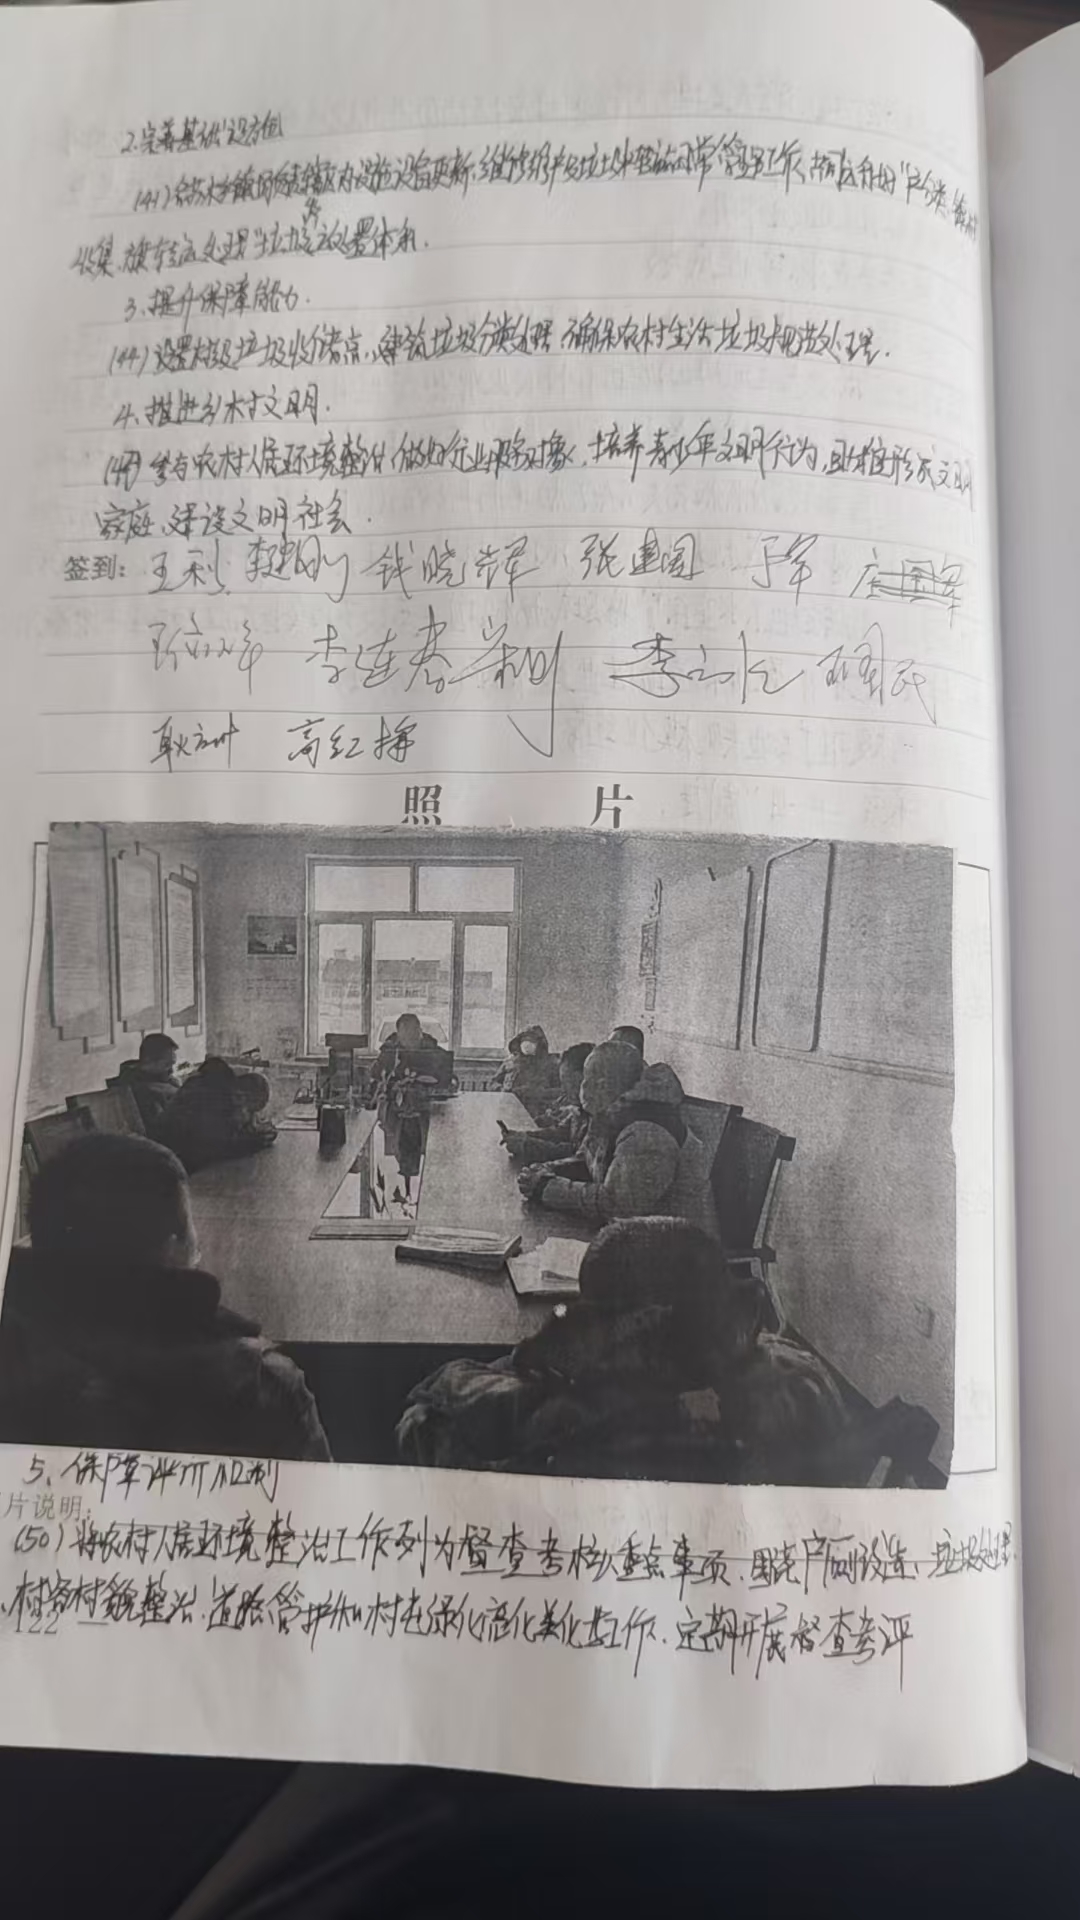 2.完善基础设施
(41)负责本乡镇辖区内设施设备更新、维修维护及垃圾中转站日常管理工作,
收集、转运处理"垃圾处置体系.
3、提升保障能力.
(44)设置村级垃圾收储点,建筑垃圾分类处理 确保农村生活垃圾规范处理.
4、推进乡村文明.
参与农村人居环境整治,做好行业服务对象,培养青少年文明行为,形成文明
家庭、建设文明社会.
签到: 王利 李建刚 钱晓辉 张建国 于军
李连春 王国民
高红梅
照 片
5、保障评价机制
片说明:
(50)将农村人居环境整治工作列为督查考核重点事项、围绕户厕改造、垃圾处理、
村容村貌整治、道路管护和村屯绿化亮化美化等工作、定期开展督查考评
122